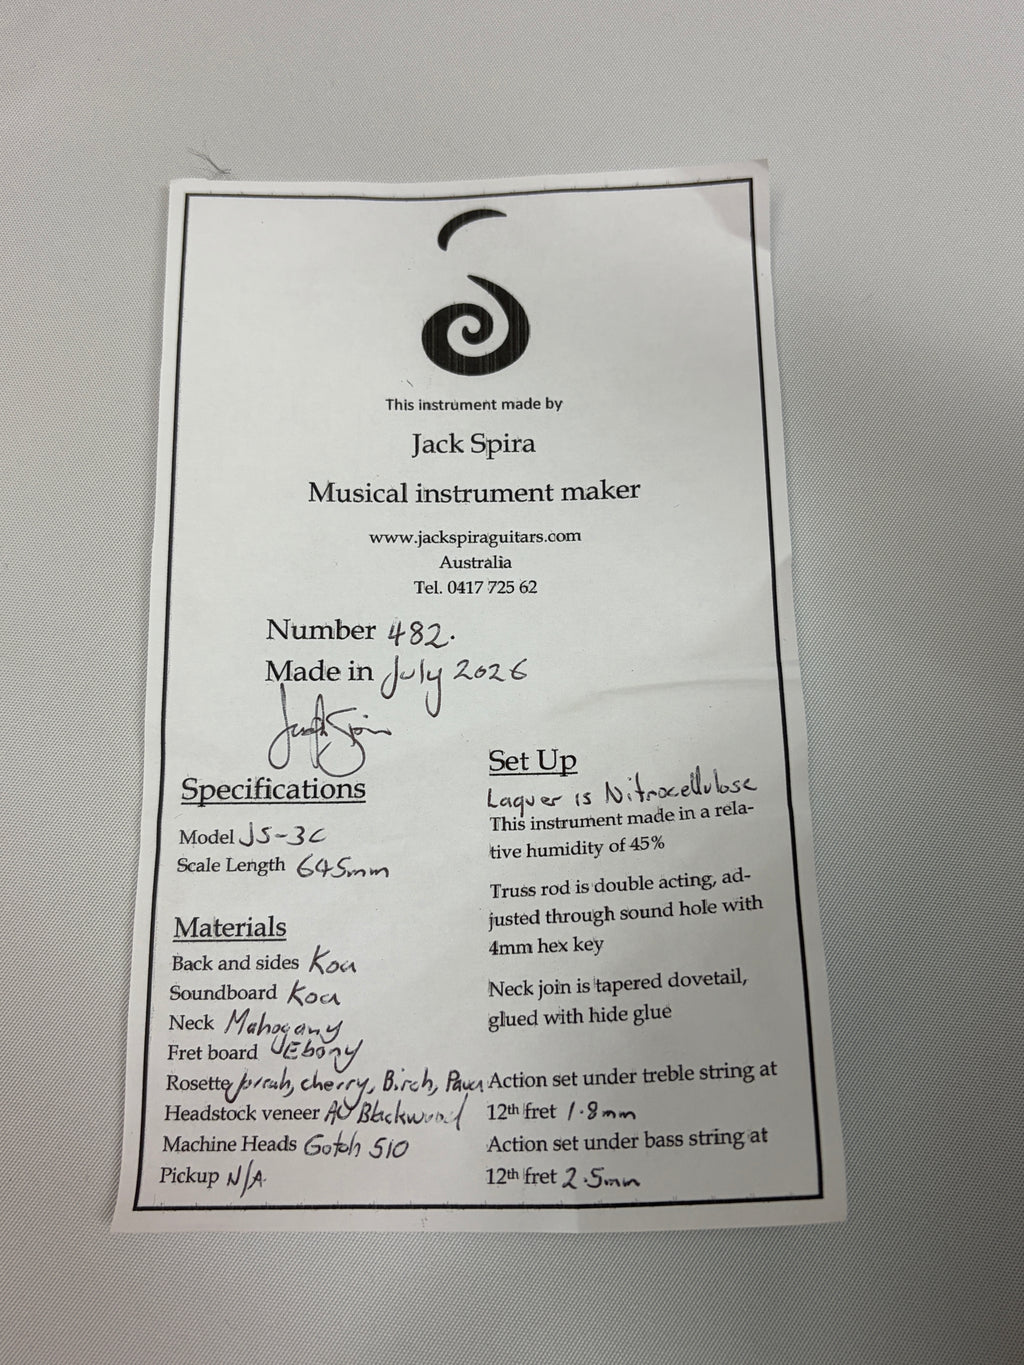 This instrument made by
Jack Spira
Musical instrument maker
www.jackspiraguitars.com
Australia
Tel. 0417 725 62
Number 482.
Made in July 2026
Specifications
Model JS-3C
Scale Length 645mm
Materials
Back and sides Koa
Soundboard Koa
Neck Mahogany
Fret board Ebony
Rosette Jarrah, cherry, Birch,
Headstock veneer Blackwood
Machine Heads Gotoh 510
Pickup N/A
Set Up
Laquer is Nitrocellulose
This instrument made in a rela-
tive humidity of 45%
Truss rod is double acting, ad-
justed through sound hole with
4mm hex key
Neck join is tapered dovetail,
glued with hide glue
Action set under treble string at
12th fret 1.8mm
Action set under bass string at
12th fret 2.5mm